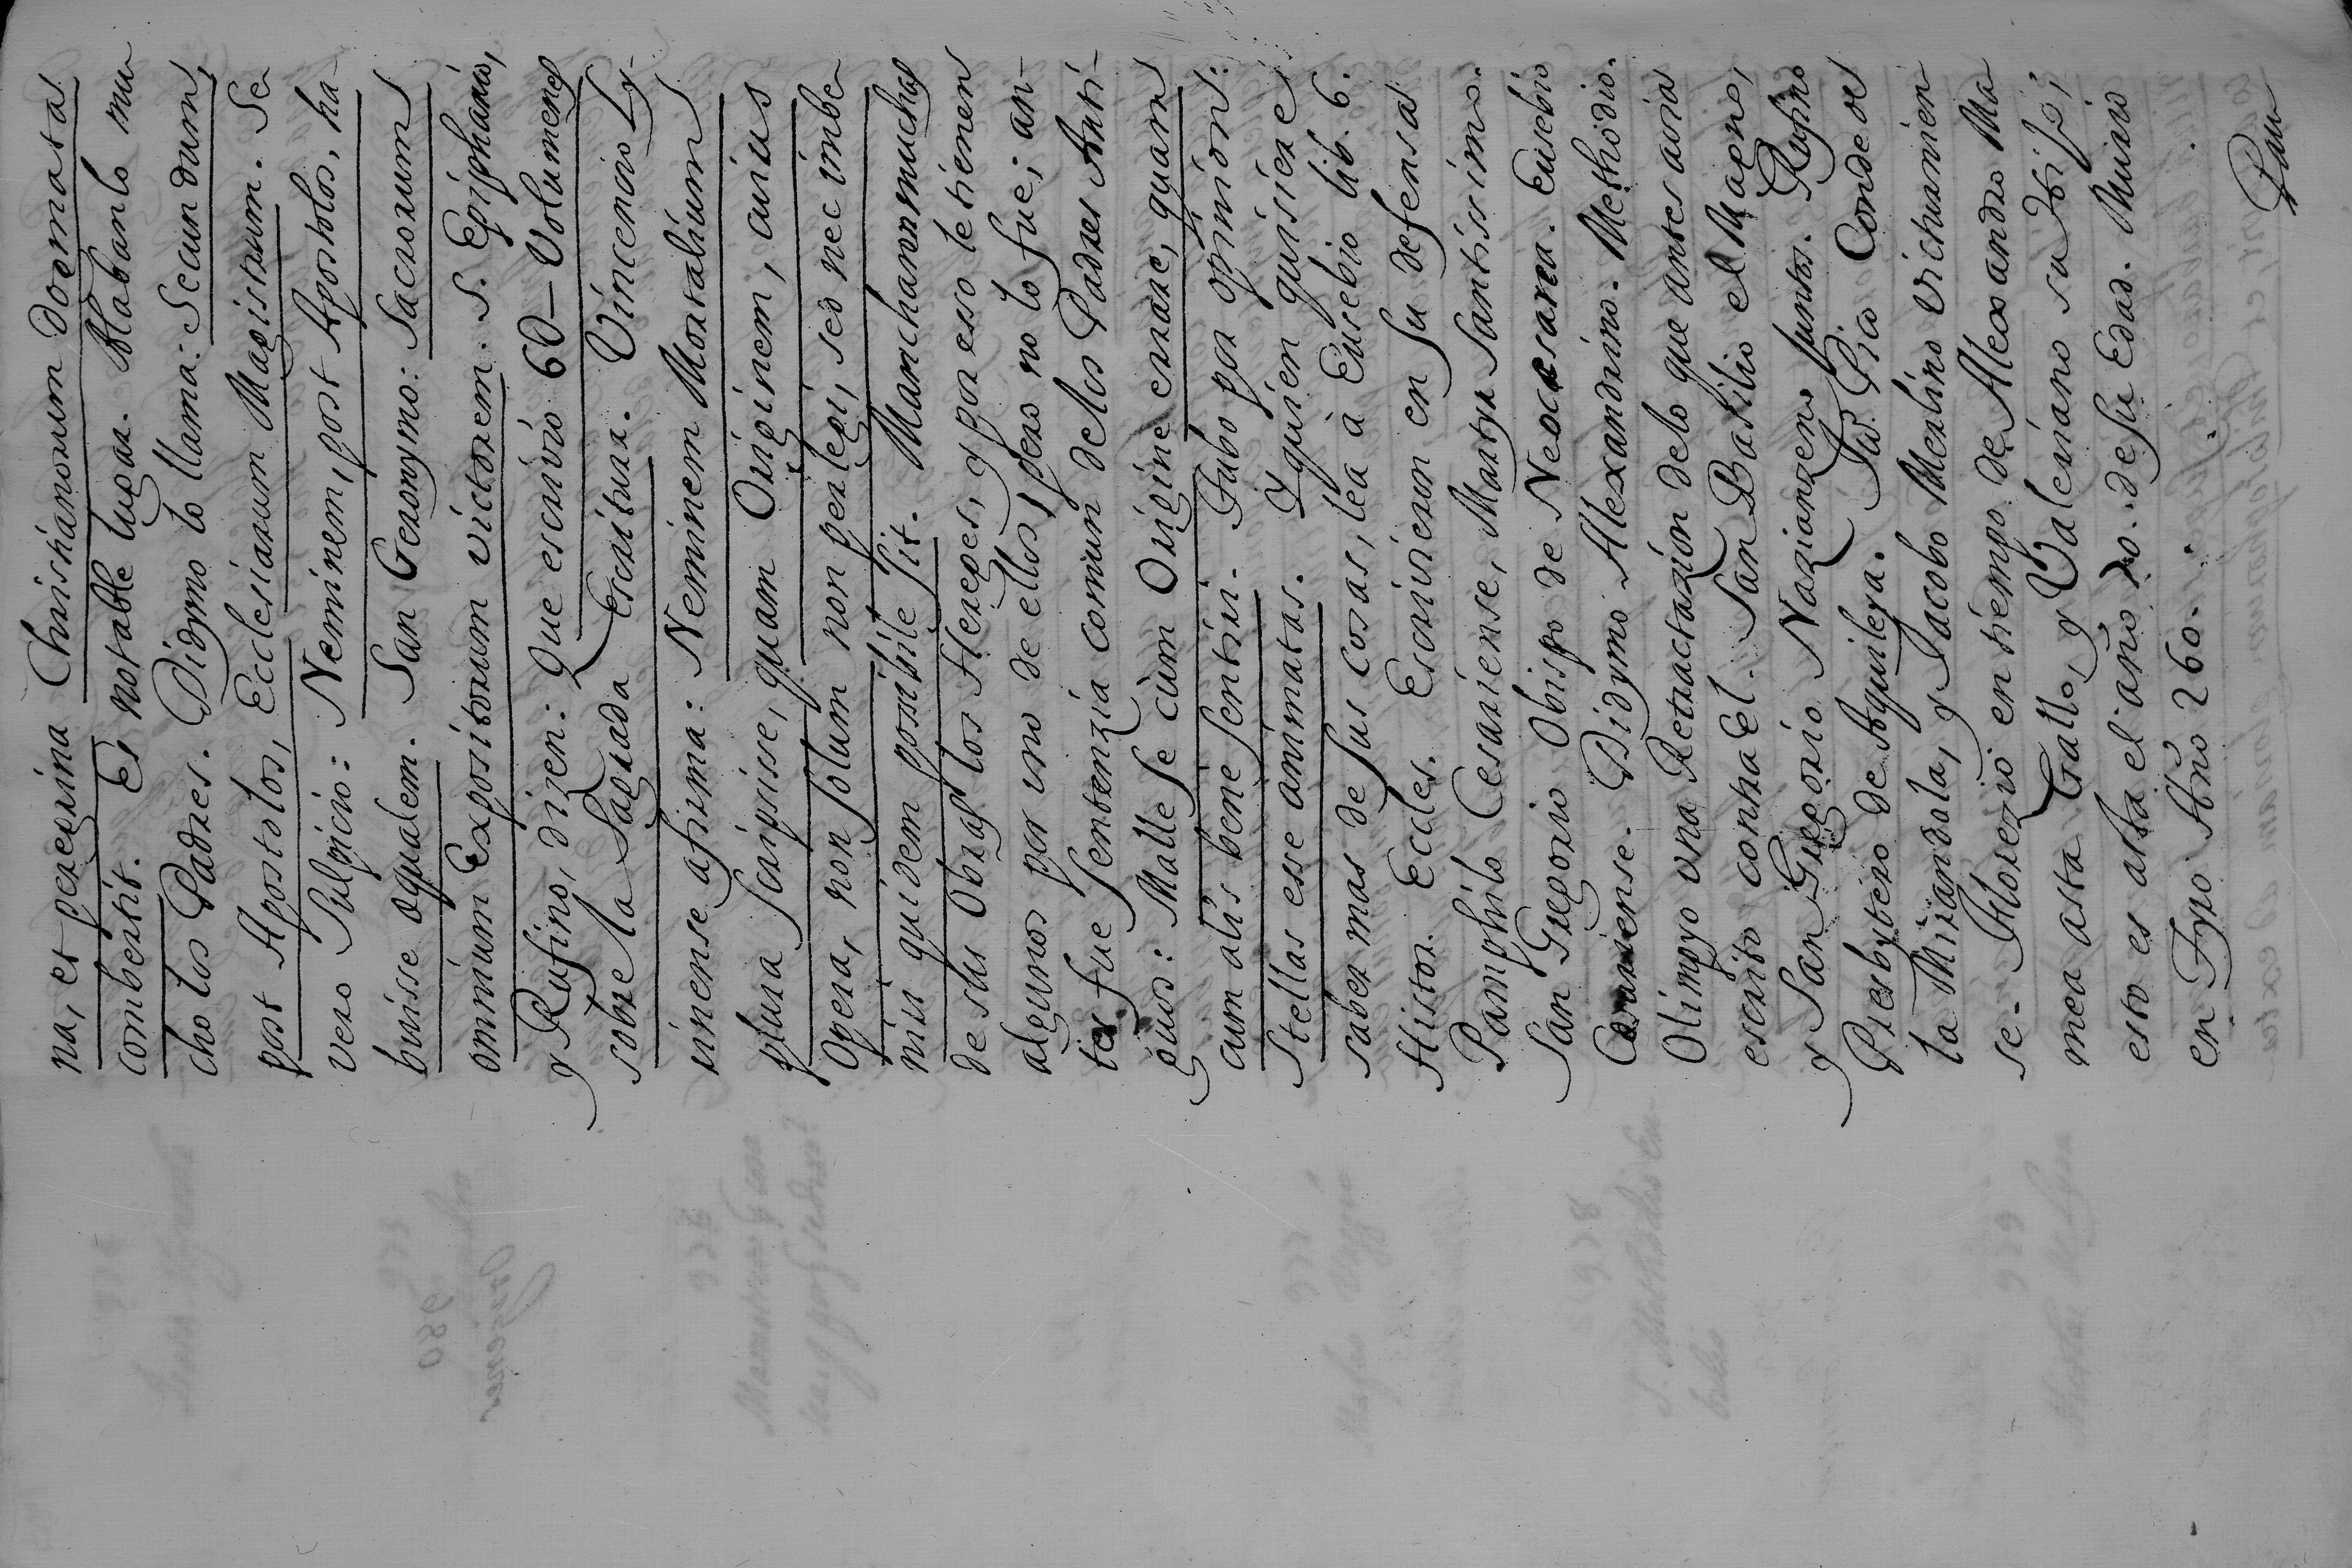 na, et peregrina Christianorum dogmata
combertit. Es notable lugar. Alabanlo mu
cho los Padres. Didymo lo llama: Secundum,
post Apostolos, Ecclesiarum Magistrum. Se
vero Sulpicio: Neminem, post Apostolos, ha
buisse equalem. San Geronymo: Sacrorum
omnium Expositorum victorem. S. Epiphanio,
y Rufino, dizen: Que escrivio 6000 Volumenes
sobre la Sagrada Escritura. Vincencio Ly-
rinense afirma: Neminem Mortalium
plura scripsisse, quam Originem, cuius
Opera, non solum non perlegi, sed nec imbe
niri quidem possibile sit. Mancharon muchas
de sus Obras los Hereges, y por esso le tienen
algunos por uno de ellos; pero no lo fue; an-
tes fue sentenzia comun de los Padres Anti-
guos: Malle se cum Origine errare, quam
cum aliis bene sentiri. Tubo por opinion:
Stellas esse animatas. Y quien quisiere
saber mas de sus cosas, lea à Eusebio lib. 6.
Histor. Eccles. Escrivieron en su defensa
Pamphilo Cesariense, Martyr Santissimo.
San Gregorio Obispo de Neocesarea. Eusebio
Cesariense. Didymo Alexandrino. Methodio.
Olimpyo una Retractazion de lo que antes avia
escrito contra El. San Basilio el Magno,
y San Gregorio Nazianzeno juntos. Rufino
Presbytero de Aquileya. Ju. Pico Conde de
la Mirandola, y Jacobo Merlino Victurnien
se. Florezio en tiempo de Alexandro Ma
mea asta Gallo, y Valeriano su Hijo;
esto es asta el año 70. de su Edad. Murio
en Tyro Año 260.
Pau
980
Origenes